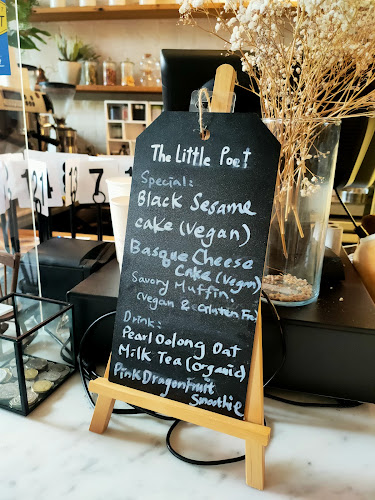 The Little Poet
Special:
Black Sesame
cake (vegan)
Basque Cheese
Cake (vegan)
Savory Muffin:
(vegan & Gluten Fri)
Drink:
Pearl Oolong Oat
Milk Tea (organic)
Pink Dragonfruit
Smoothie
7